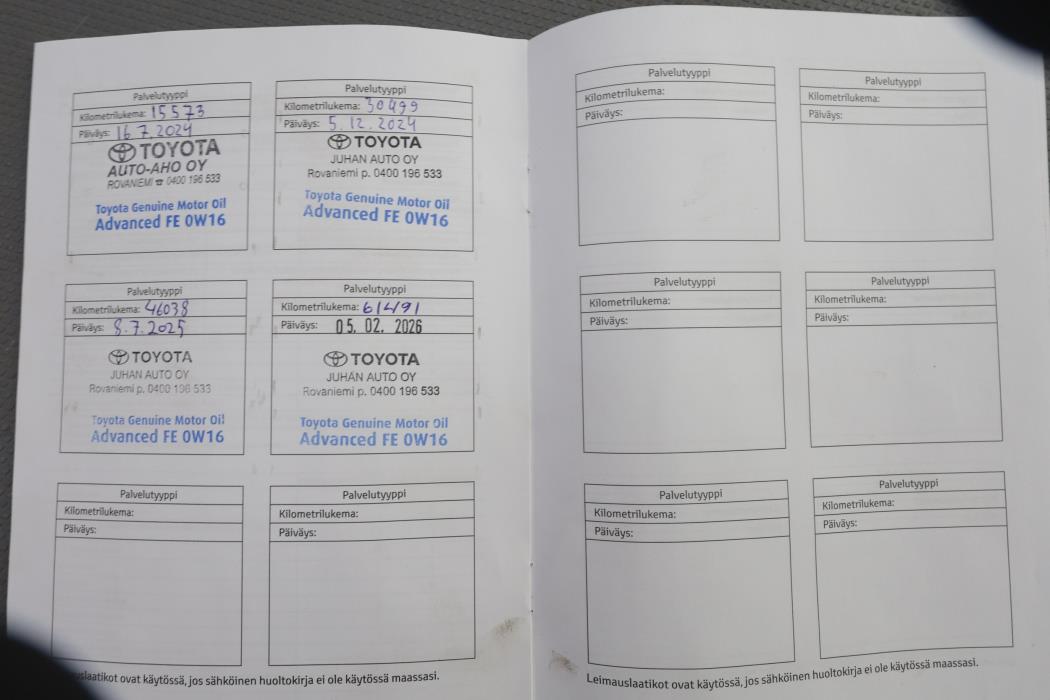 Palvelutyyppi
Kilometrilukema: 15573
Päiväys: 16.7.2024
TOYOTA
AUTO-AHO OY
ROVANIEMI ☎ 0400 196 533
Toyota Genuine Motor Oil
Advanced FE 0W16
Palvelutyyppi
Kilometrilukema: 30499
Päiväys: 5.12.2024
TOYOTA
JUHAN AUTO OY
Rovaniemi p. 0400 196 533
Toyota Genuine Motor Oil
Advanced FE 0W16
Palvelutyyppi
Kilometrilukema: 46038
Päiväys: 8.7.2025
TOYOTA
JUHAN AUTO OY
Rovaniemi p. 0400 196 533
Toyota Genuine Motor Oil
Advanced FE 0W16
Palvelutyyppi
Kilometrilukema: 61491
Päiväys: 05. 02. 2026
TOYOTA
JUHAN AUTO OY
Rovaniemi p. 0400 196 533
Toyota Genuine Motor Oil
Advanced FE 0W16
Palvelutyyppi
Kilometrilukema:
Päiväys:
Palvelutyyppi
Kilometrilukema:
Päiväys:
ovat käytössä, jos sähköinen huoltokirja ei ole käytössä maassasi.
Palvelutyyppi
Kilometrilukema:
Päiväys:
Palvelutyyppi
Kilometrilukema:
Päiväys:
Palvelutyyppi
Kilometrilukema:
Päiväys:
Palvelutyyppi
Kilometrilukema:
Päiväys:
Palvelutyyppi
Kilometrilukema:
Päiväys:
Palvelutyyppi
Kilometrilukema:
Päiväys:
Leimauslaatikot ovat käytössä, jos sähköinen huoltokirja ei ole käytössä maassasi.